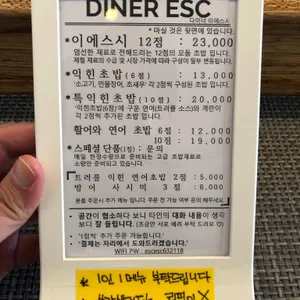 DINER ESC
다이너 이에스시
* 마실 것은 뒷면에 있습니다.
* 이에스시 12점 : 23,000
엄선한 재료로 전해드리는 12점의 모듬 초밥 입니다.
제철 재료의 수급 및 시장 가격에 따라 구성이 일부 변동됩니다.
* 익힌초밥(6점) : 13,000
'소고기, 민물장어, 초새우' 각 2점씩 구성된 초밥 입니다.
* 특익힌초밥(10점) : 20,000
'익힌초밥(6점)에 구운 연어(트러플 소스)와 계란이
각 2점씩 추가된 구성 입니다.
* 활어와 연어 초밥 6점 : 12,000
10점 : 19,000
* 스페셜 단품(1점) : 문의
매일 한정수량으로 준비되는 고급 초밥재료로
소량만 준비되고 있습니다.
트러플 식힌연어초밥 2점 : 5,000
방어 사시미 3점 : 6,000
분품 주문시 추가 메뉴 입니다. 주문 전 가능 여부 문의 해주세요!
- 공간이 협소하다 보니 타인의 대화 내용이 생각
보다 잘 들립니다. (조금만 서로 배려 부탁 드려요 ☺)
- '1점씩' 추가 주문 가능합니다.
- '결제는 자리에서 도와드리겠습니다.'
WIFI PW : escesc632118
* 1인 1메뉴 부탁드립니다